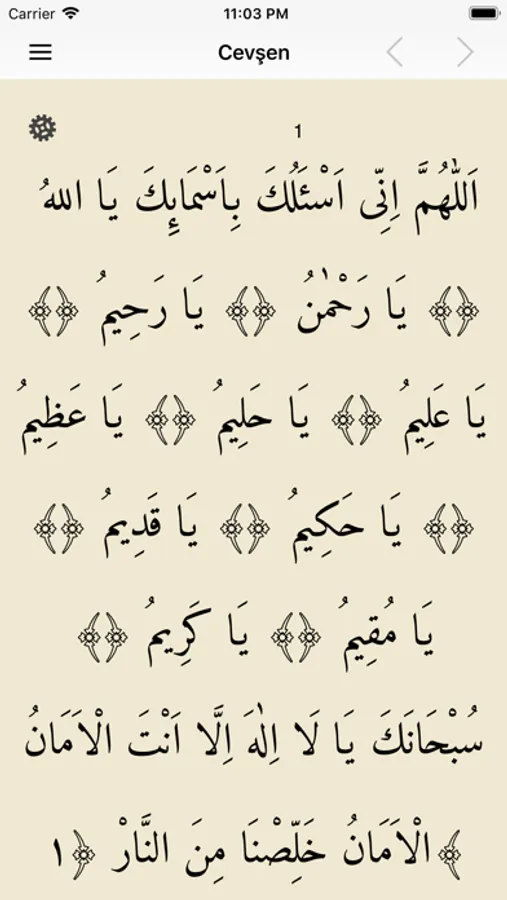 Carrier 11:03 PM
Cevşen
1
اَللّٰهُمَّ اِنّٖى اَسْئَلُكَ بِاَسْمَائِكَ يَا اللهُ
﴿﴾ يَا رَحْمٰنُ ﴿﴾ يَا رَحِيمُ ﴿﴾
يَا عَلِيمُ ﴿﴾ يَا حَلِيمُ ﴿﴾ يَا عَظِيمُ
﴿﴾ يَا حَكِيمُ ﴿﴾ يَا قَدِيمُ ﴿﴾
يَا مُقِيمُ ﴿﴾ يَا كَرِيمُ ﴿﴾
سُبْحَانَكَ يَا لَا اِلٰهَ اِلَّا اَنْتَ الْاَمَانُ
الْاَمَانُ خَلِّصْنَا مِنَ النَّارْ ﴿١﴾